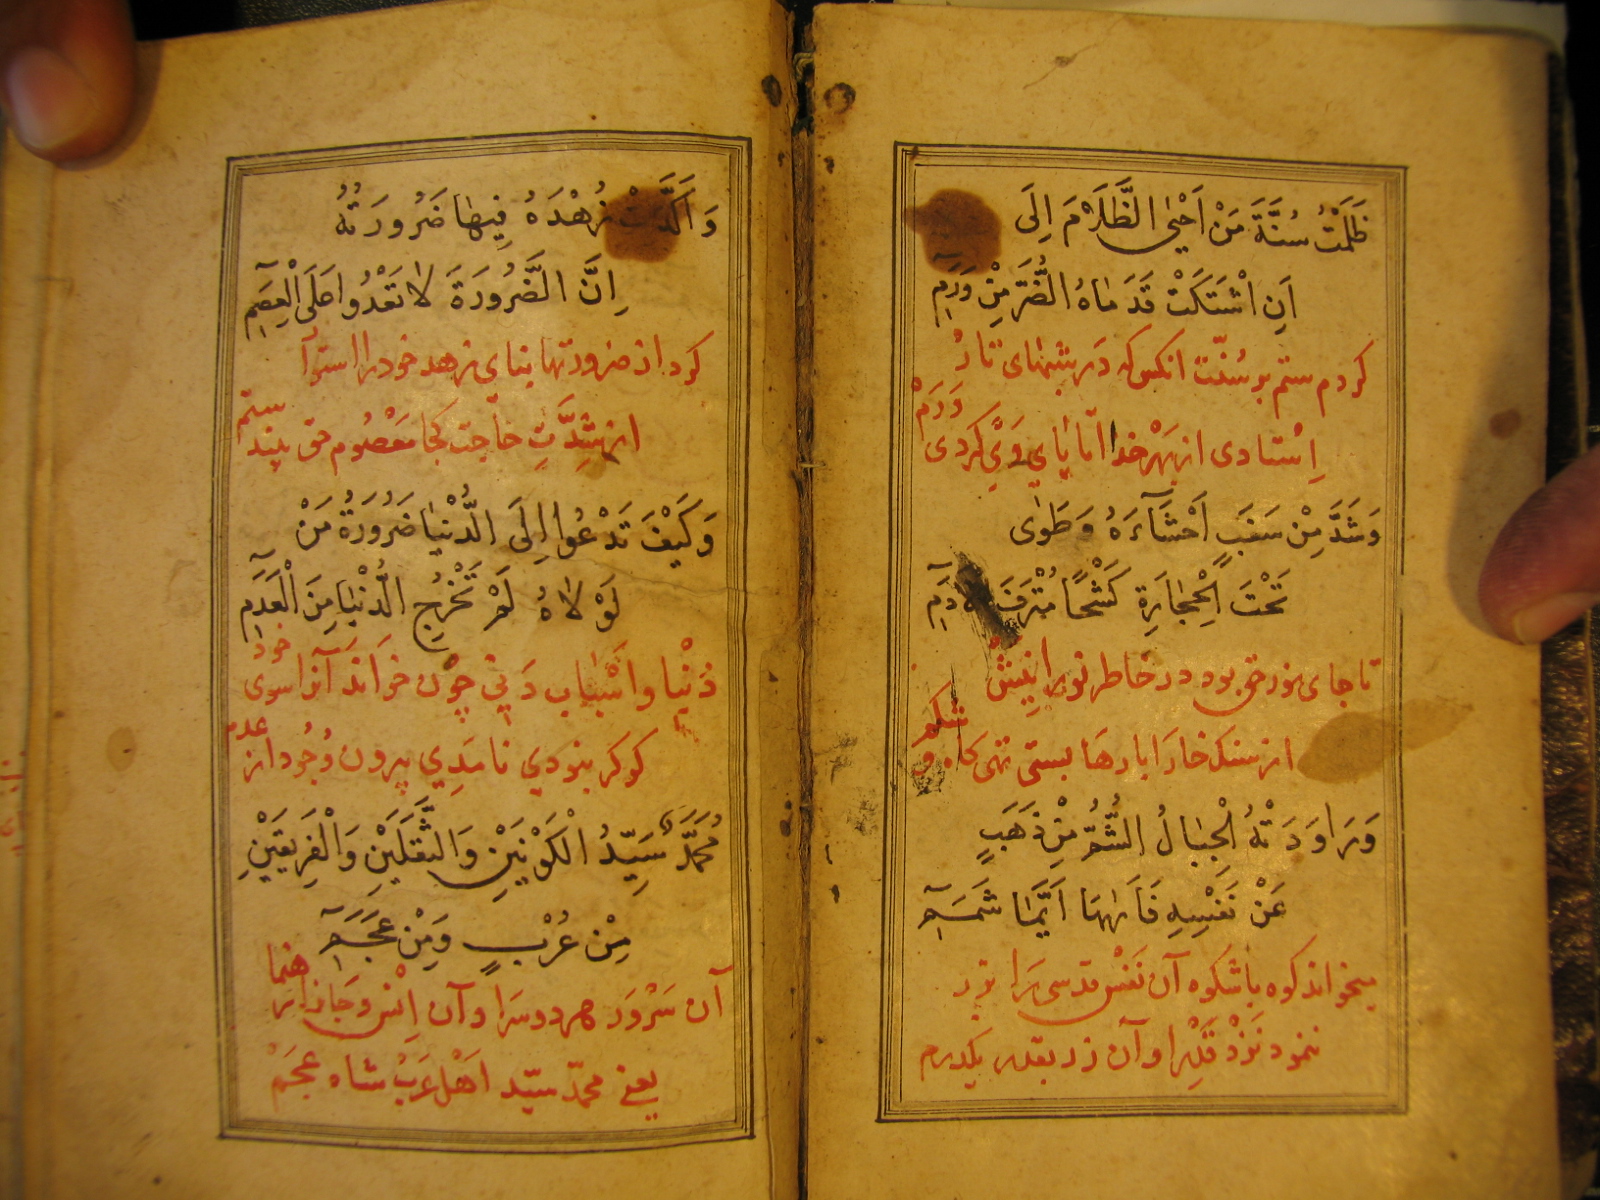 ظَلَمْتُ سُنَّةَ مَنْ اَحْيَى الظَّلَامَ اِلَى
اَنِ اشْتَكَتْ قَدَمَاهُ الضُّرَّ مِنْ وَرَمِ
كردم ستم بر سُنّت انكس كه در شبهاى تارْ
اِسْتادى از بهْر خدا تا پاىِ وَىْ كردى وَرَمْ
وَشَدَّ مِنْ سَغَبٍ اَحْشَآءَهُ وَطَوٰى
تَحْتَ الْحِجَارَةِ كَشْحًا مُتْرَفَ دَمِ
تا جاى نور حق بود در خاطر
از سنك خارا بارها بستى تهى كاه و شكم
وَرَاوَدَتْهُ الْجِبَالُ الشُّمُّ مِنْ ذَهَبٍ
عَنْ نَفْسِهِ فَاَرَاهَا اَيَّمَا شَمَمِ
ميخواند كوه باشكوه آن نَفْس قدسى را بزر
ننمود نَزْد او آن زر بقدر يكدرم
وَاَكَّدَتْ زُهْدَهُ فِيهَا ضَرُورَتُهُ
اِنَّ الضَّرُورَةَ لَا تَعْدُوا عَلَى الْعِصَمِ
كرد از ضرورتها بناى زهد خود را استوار
از شِدَّتِ حاجت كجا مَعْصُوم حق بيند ستم
وَكَيْفَ تَدْعُوا اِلَى الدُّنْيَا ضَرُورَةُ مَنْ
لَوْلَاهُ لَمْ تَخْرُجِ الدُّنْيَا مِنَ الْعَدَمِ
دُنْيا و اَسْباب دَنى چون خوانَد آنرا سوى خود
كو كر نبودي نامَدِي بيرون وُجُود از عدم
مُحَمَّدٌ سَيِّدُ الْكَوْنَيْنِ وَالثَّقَلَيْنِ وَالْفَرِيقَيْنِ
مِنْ عُرْبٍ وَمِنْ عَجَمِ
آن سَرْوَر هر دو سَرا و آن اِنْس و جان را رهنما
يعنى محمّد سيّد اَهْل عَرَبْ شاه عجَمْ